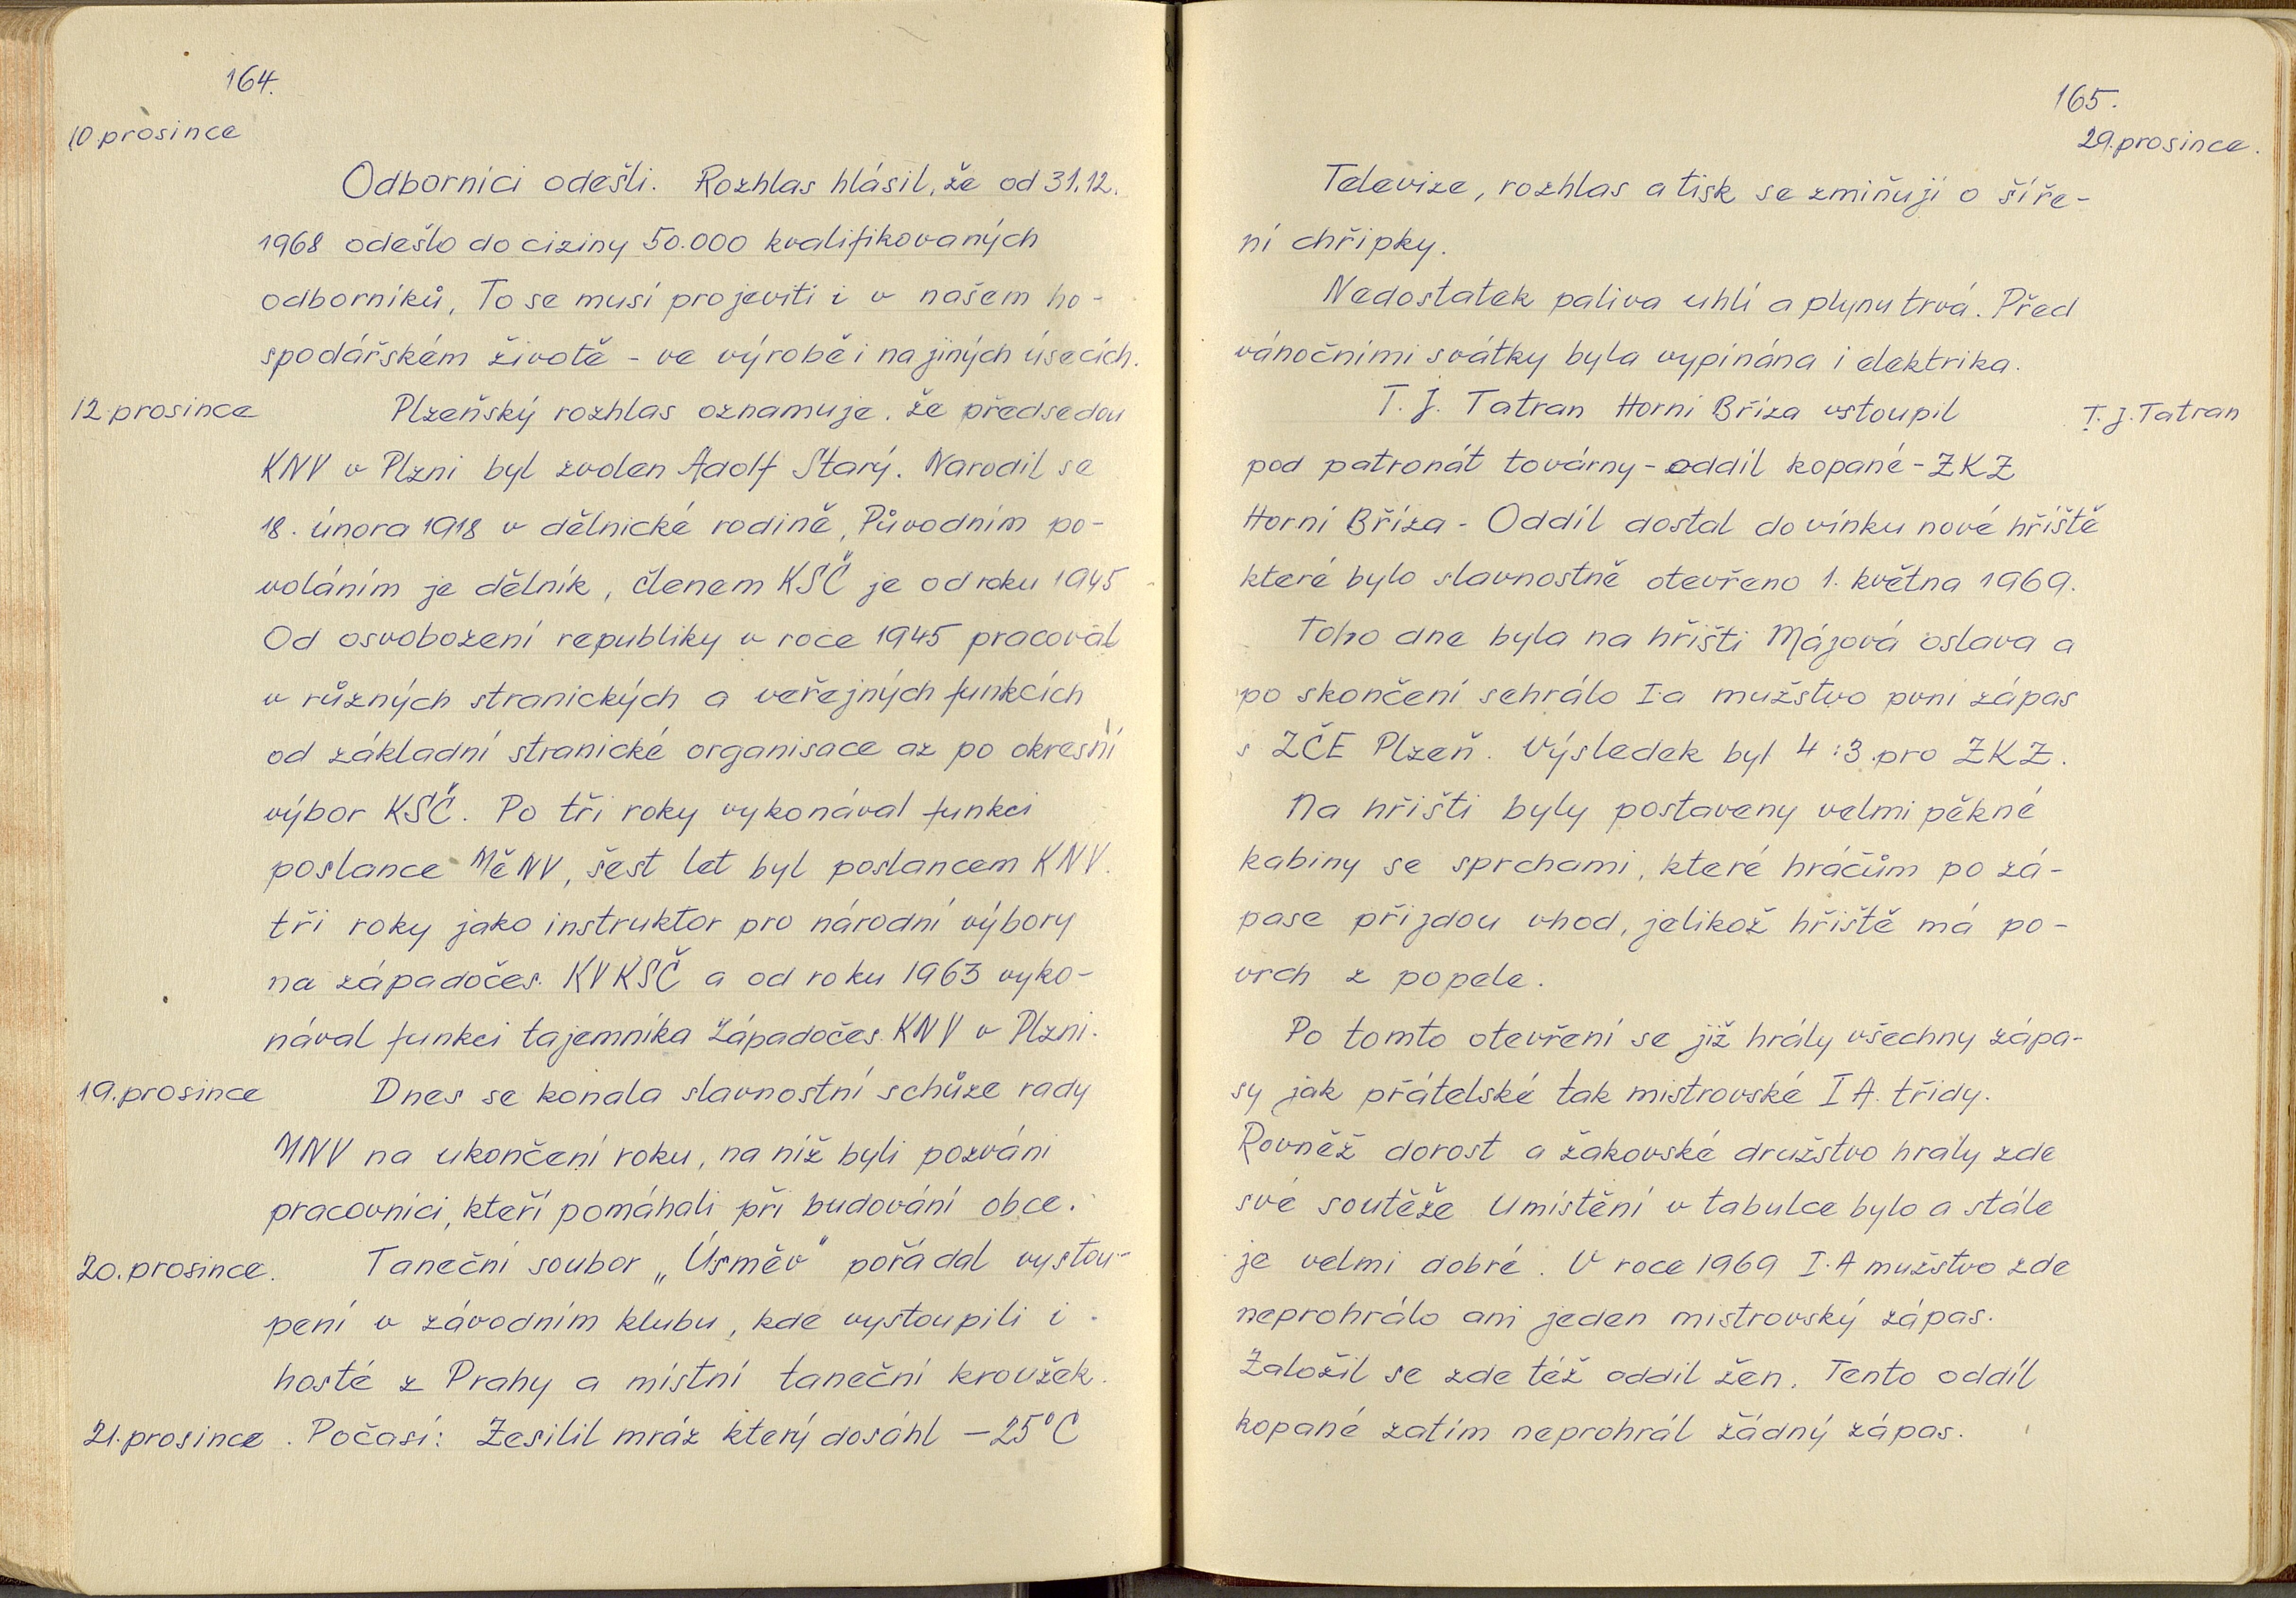 164.
10 prosince
Odborníci odešli. Rozhlas hlásil, že od 31.12.
1968 odešlo do ciziny 50.000 kvalifikovaných
odborníků, To se musí projeviti i v našem ho-
spodářském životě - ve výrobě i na jiných úsecích.
12. prosince Plzeňský rozhlas oznamuje. že předsedou
KNV v Plzni byl zvolen Adolf Starý. Narodil se
18. února 1918 v dělnické rodině, Původním po-
voláním je dělník, členem KSČ je od roku 1945
Od osvobození republiky v roce 1945 pracoval
v různých stranických a veřejných funkcích
od základní stranické organisace az po okresní
výbor KSČ. Po tři roky vykonával funkci
poslance MěNV, šest let byl poslancem KNV.
tři roky jako instruktor pro národní výbory
na západočes. KVKSČ a od roku 1963 vyko-
nával funkci tajemníka Západočes. KNV v Plzni.
19. prosince Dnes se konala slavnostní schůze rady
MNV na ukončení roku, na níž byli pozváni
pracovníci, kteří pomáhali při budování obce.
20. prosince. Taneční soubor „Úsměv" pořádal vystou-
pení v závodním klubu, kde vystoupili i
hosté z Prahy a místní taneční kroužek.
21. prosince. Počasí: Zesílil mráz který dosáhl -25°C
165.
29. prosince.
Televize, rozhlas a tisk se zmiňují o šíře-
ní chřipky.
Nedostatek paliva uhlí a plynu trvá. Před
vánočními svátky byla vypínána i elektrika.
T. J. Tatran Horní Bříza vstoupil T. J. Tatran
pod patronát továrny - oddíl kopané - ZKZ
Horní Bříza - Oddíl dostal do vínku nové hřiště
které bylo slavnostně otevřeno 1. května 1969.
Toho dne byla na hřišti Májová oslava a
po skončení sehrálo I.a mužstvo prvni zápas
s ZČE Plzeň. Výsledek byl 4:3 pro ZKZ.
Na hřišti byly postaveny velmi pěkné
kabiny se sprchami, které hráčům po zá-
pase přijdou vhod, jelikož hřiště má po-
vrch z popele.
Po tomto otevření se již hrály všechny zápa-
sy jak přátelské tak mistrovské I A. třídy.
Rovněž dorost a žákovské družstvo hrály zde
své soutěže Umístění v tabulce bylo a stále
je velmi dobré. V roce 1969 I.A mužstvo zde
neprohrálo ani jeden mistrovský zápas.
Založil se zde též oddíl žen. Tento oddíl
kopané zatím neprohrál žádný zápas.